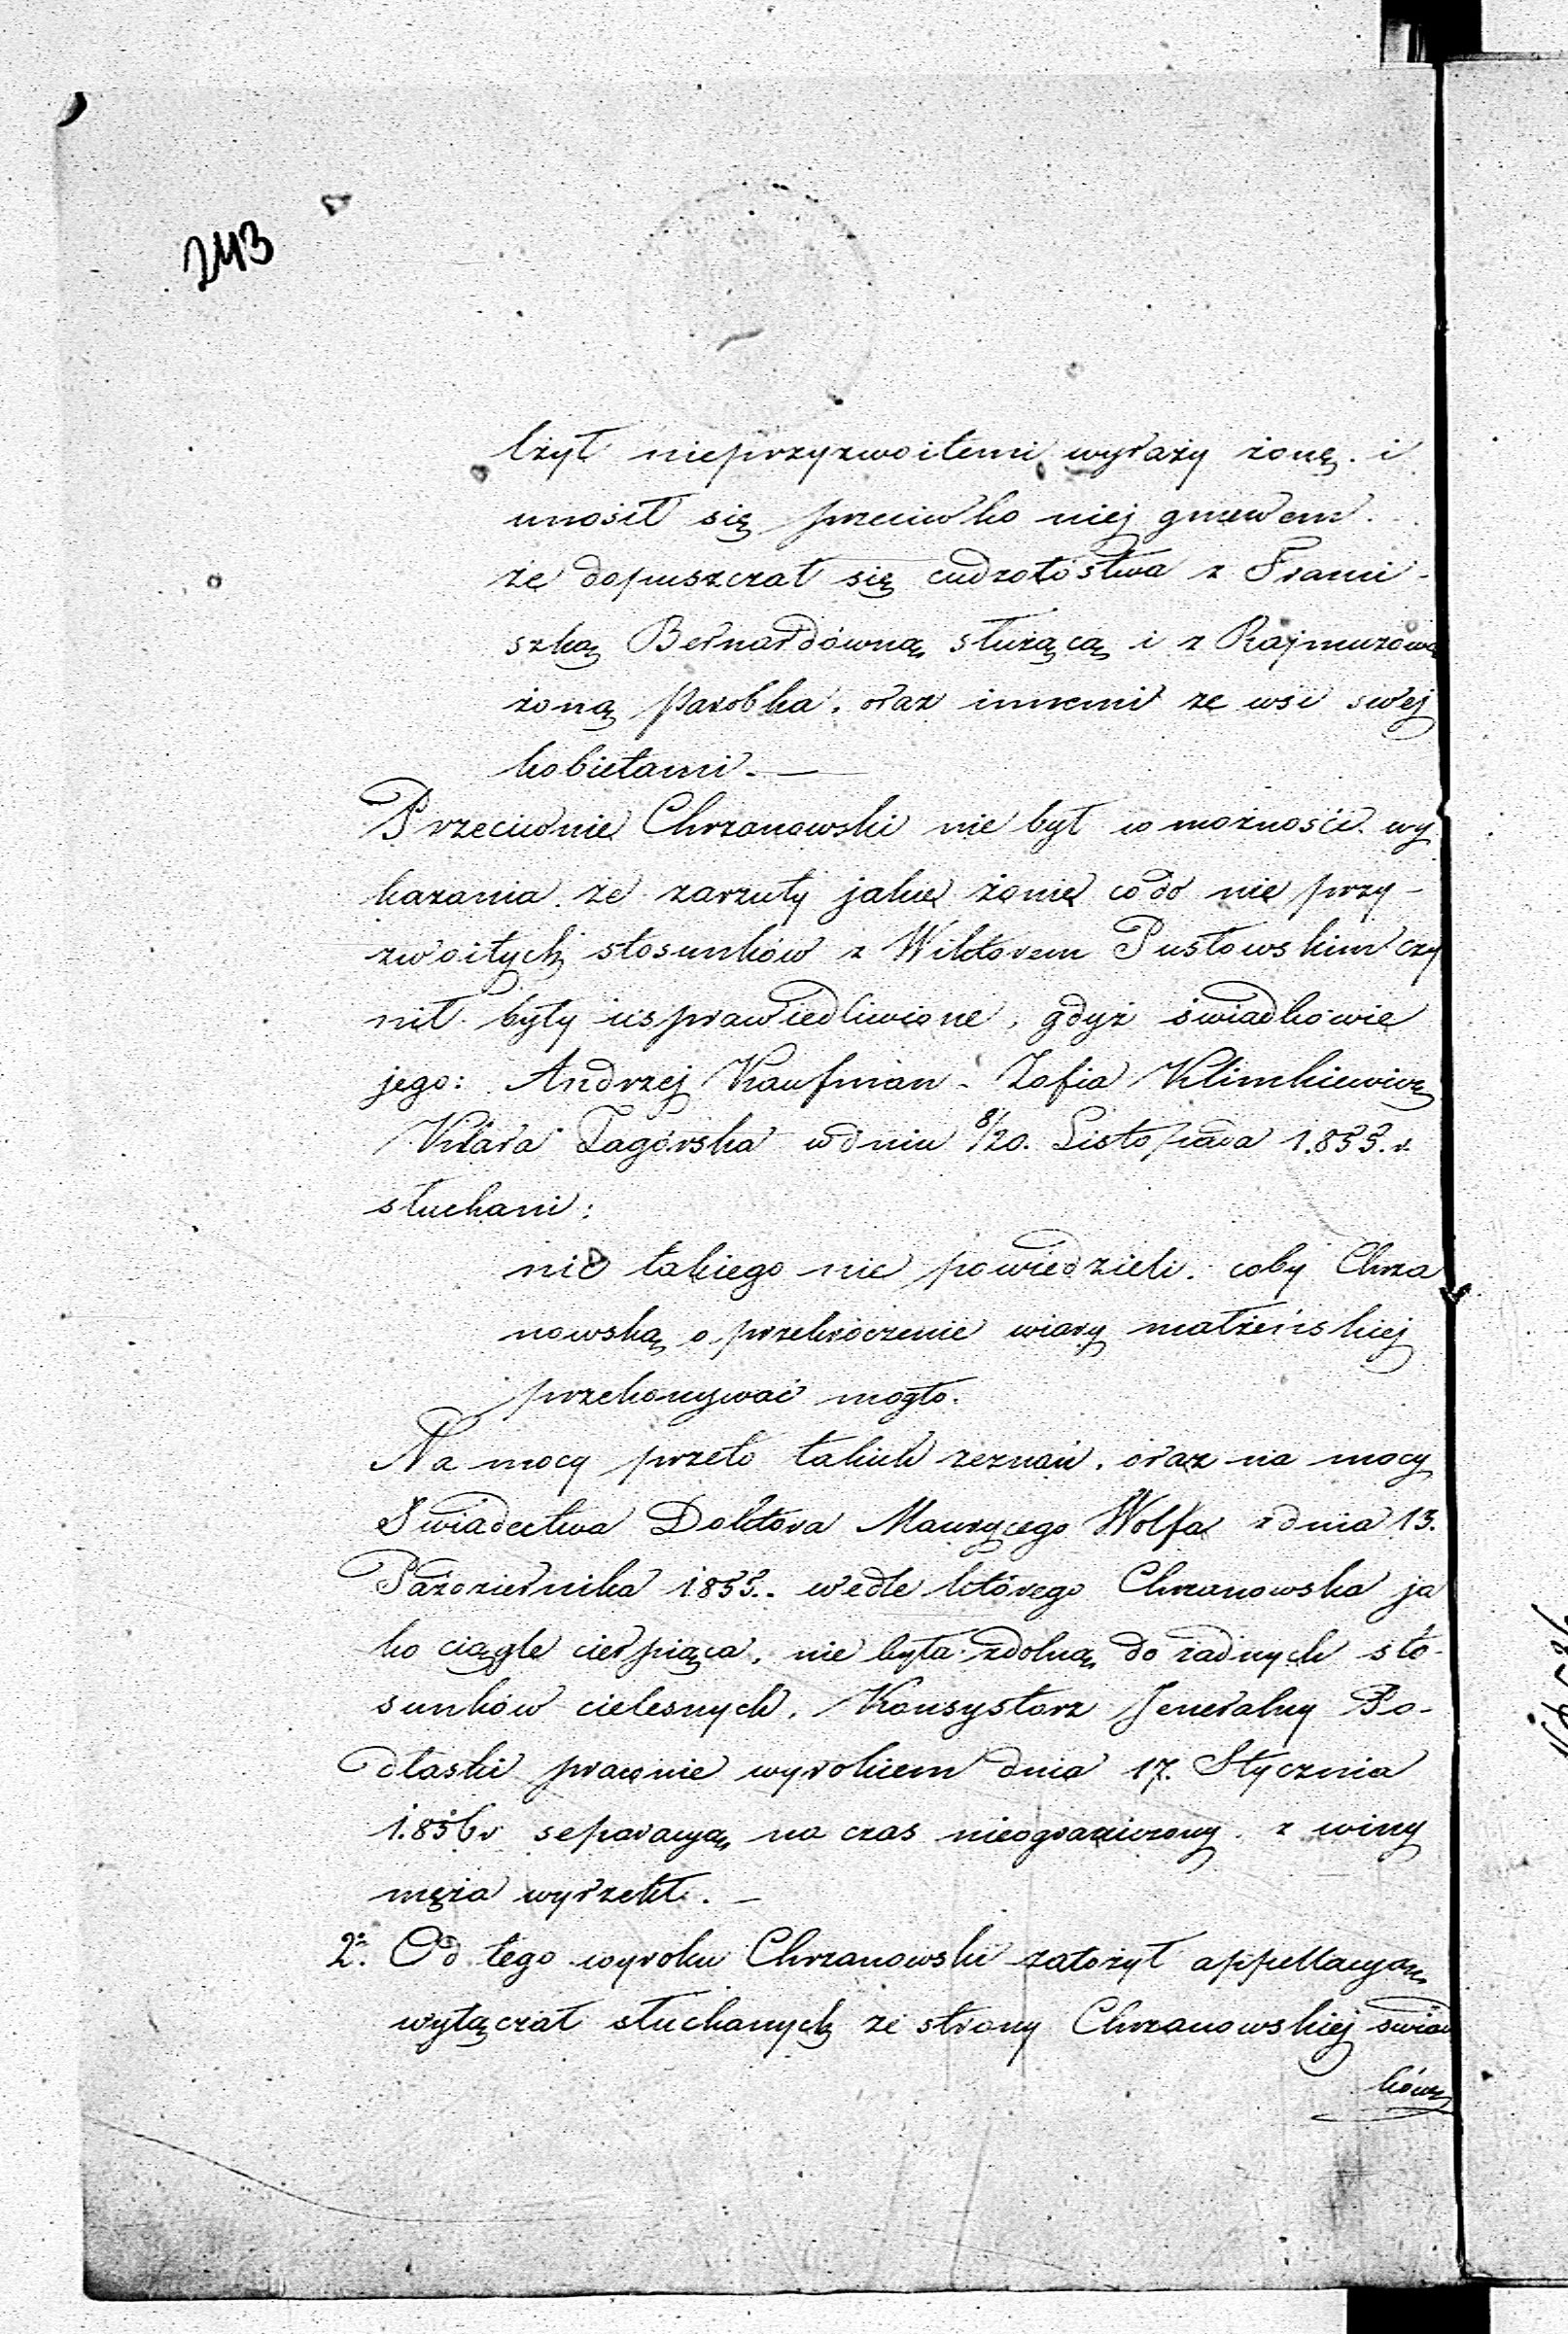 243
lżył nieprzyzwoitemi wyrazy żonę i
unosił się przeciwko niej gniewem.
że dopuszczał się cudzołóstwa z Franci-
szką Bernardówną służącą i z Rajmuzową
żoną parobka, oraz innemi ze wsi swej
kobietami. —
Przeciwnie Chrzanowski nie był w możności wy
kazania, że zarzuty jakie żonie co do nie przy-
zwoitych stosunków z Wiktorem Pustowskim czy
nił były usprawiedliwione, gdyż świadkowie
jego: Andrzej Kaufman - Zofia Klimkiewicz
Klara Zagórska w dniu 8/20. Listopada 1.855. r.
słuchani:
nic takiego nie powiedzieli, coby Chrza
nowską o przekroczenie wiary małżeńskiej
przekonywać mogło.
Na mocy przeto takich zeznań, oraz na mocy
Świadectwa Doktora Maurycego Wolfa z dnia 13.
Października 1855.. wedle którego Chrzanowska ja
ko ciągle cierpiąca, nie była zdolną do żadnych sto-
sunków cielesnych, Konsystorz Jeneralny Po-
dlaski prawnie wyrokiem dnia 17. Stycznia
1.856 r separacyą na czas nieograniczony z winy
męża wyrzekł. —
2º. Od tego wyroku Chrzanowski założył appellacyą,
wyłączał słuchanych ze strony Chrzanowskiej świad
ków